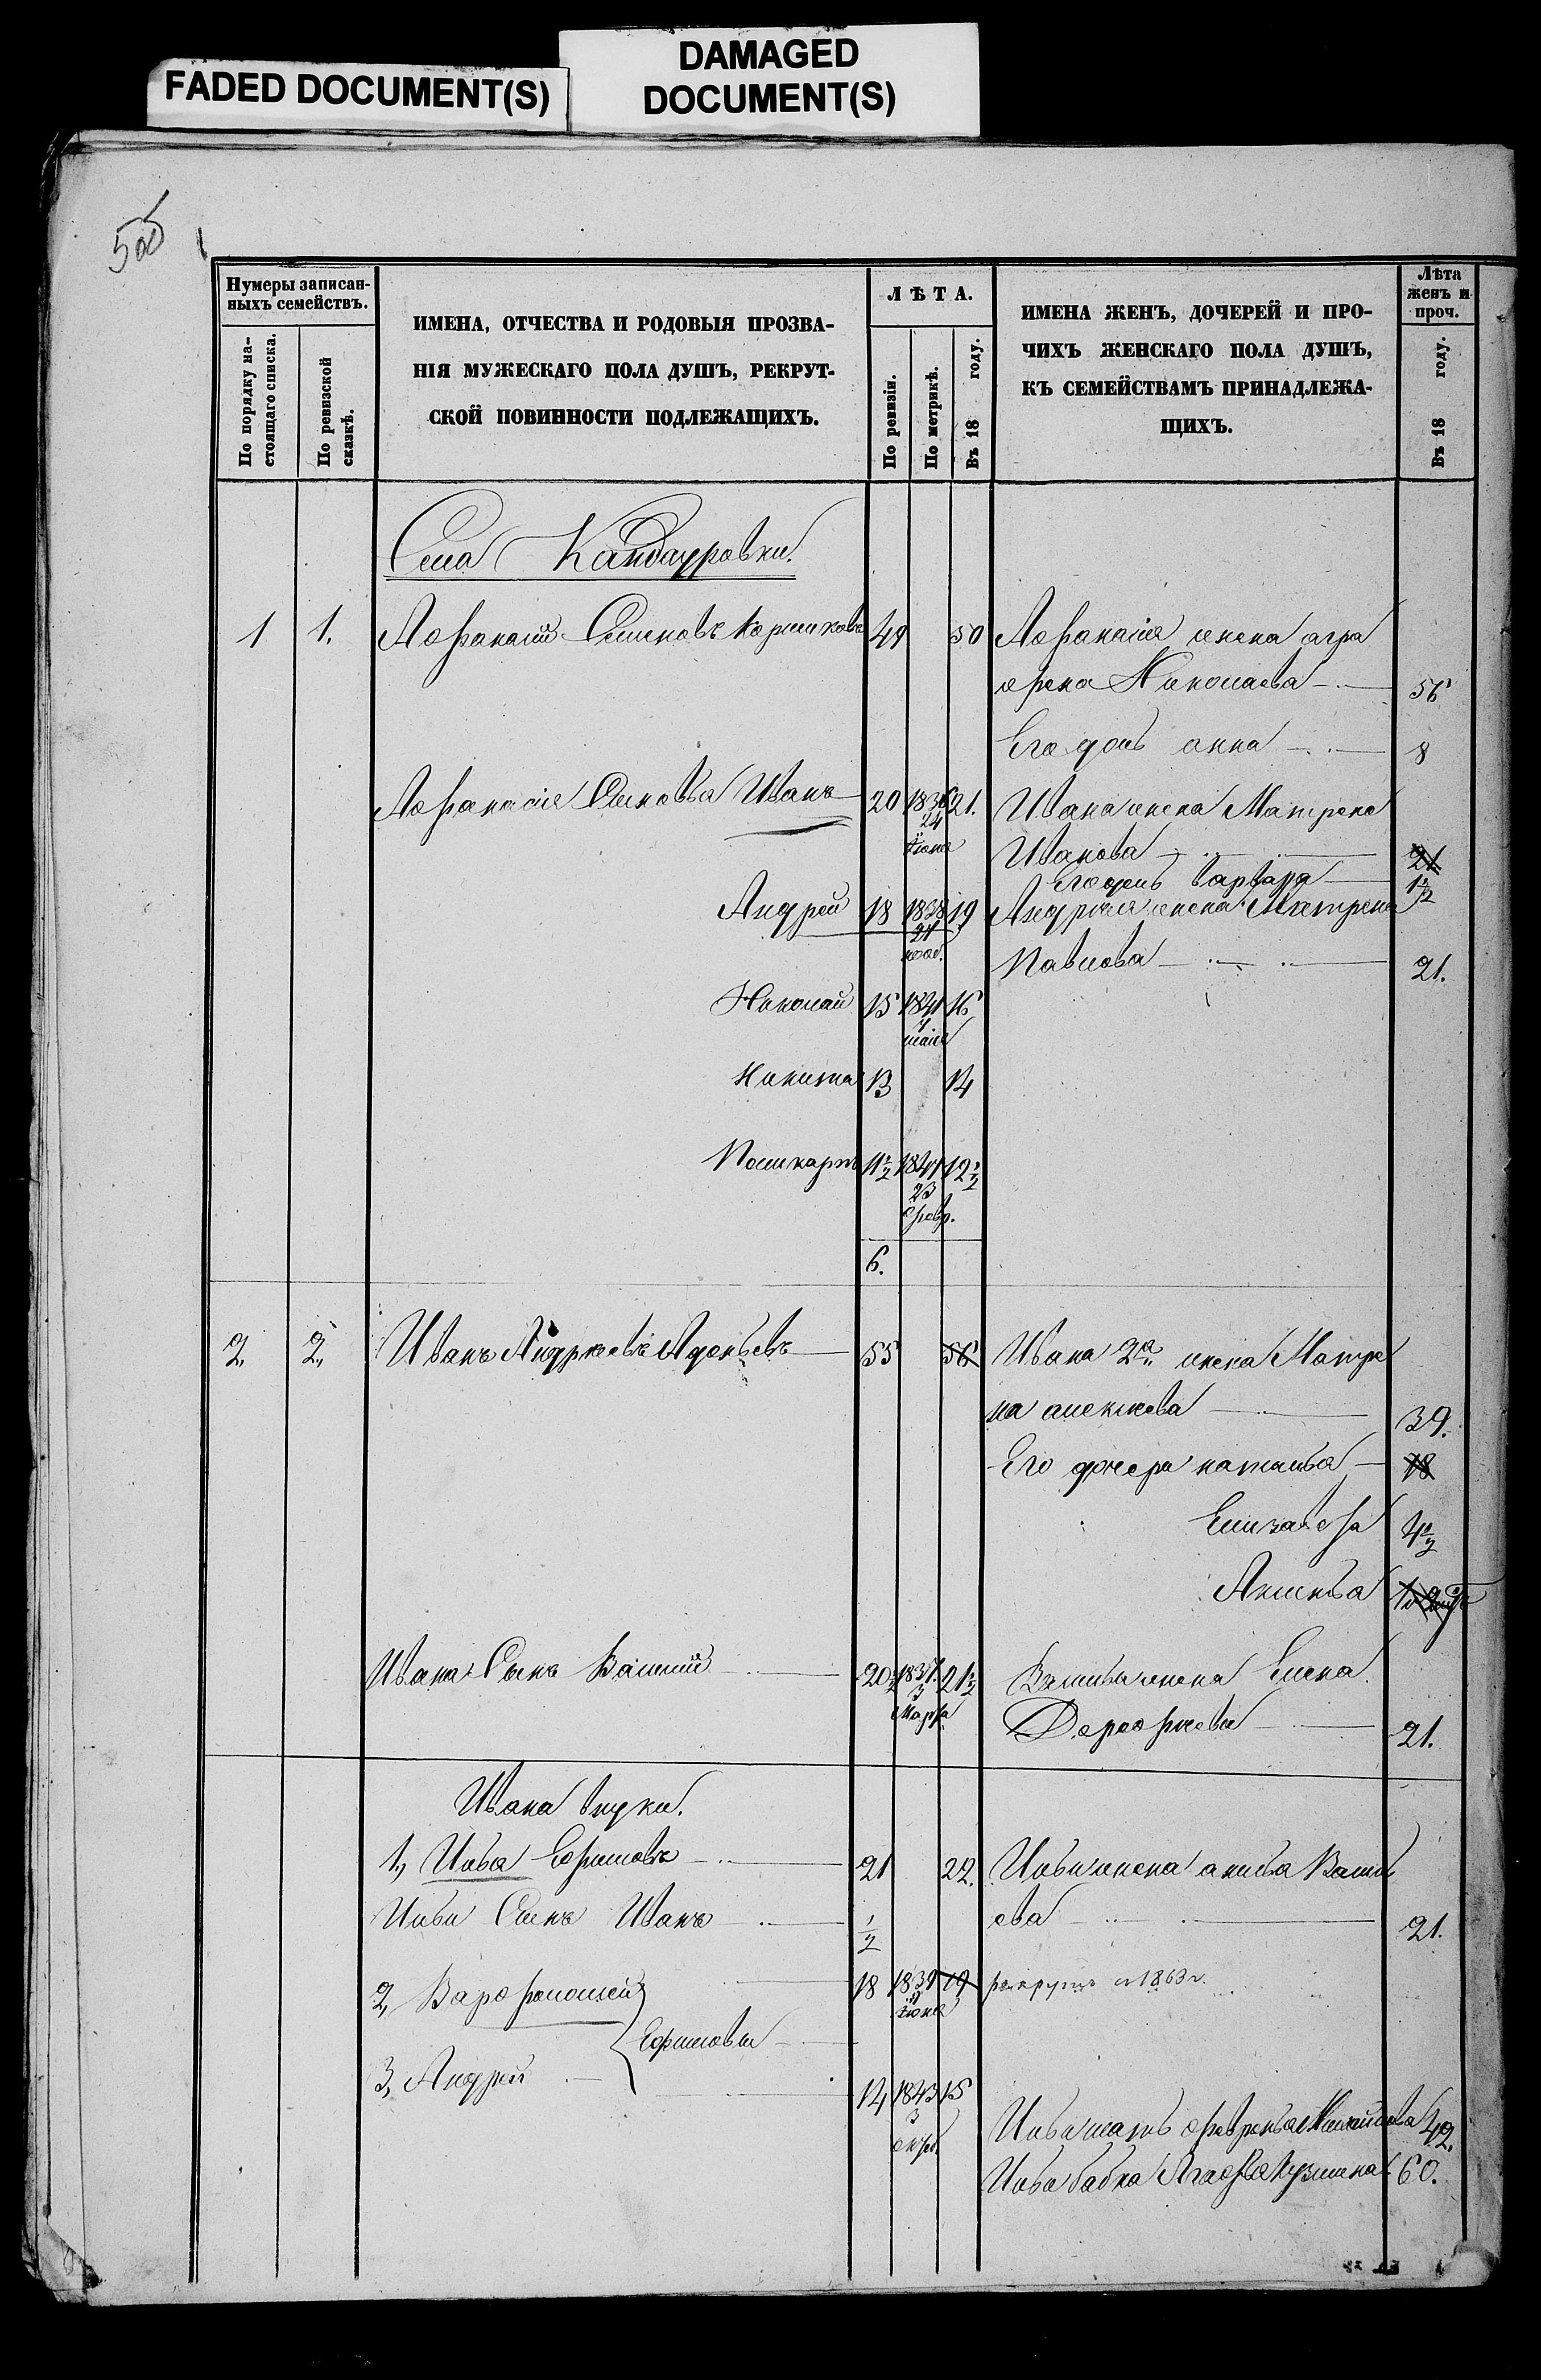 FADED DOCUMENT(S)
DAMAGED
DOCUMENT(S)
Нумеры записан-
ныхъ семействъ.
По порядку на-
стоящаго списка.
По ревизской
сказкѣ.
ИМЕНА, ОТЧЕСТВА И РОДОВЫЯ ПРОЗВА-
НІЯ МУЖЕСКАГО ПОЛА ДУШЪ, РЕКРУТ-
СКОЙ ПОВИННОСТИ ПОДЛЕЖАЩИХЪ.
ЛѢТА.
По ревизіи.
По метрикѣ.
Въ 18 году.
ИМЕНА ЖЕНЪ, ДОЧЕРЕЙ И ПРО-
ЧИХЪ ЖЕНСКАГО ПОЛА ДУШЪ,
КЪ СЕМЕЙСТВАМЪ ПРИНАДЛЕЖА-
ЩИХЪ.
Лѣта
женъ и
проч.
Въ 18 году.
Села Кандауровки.
1 1. Афанасій Семеновъ 49 50 Афанасія жена агра
фена Николаева 56
Его дочь анна 8
Афанасія Сыновья Иванъ 20 1836 21. Ивана жена Матрена
24
Іюня
Иванова 21
Его дочь варвара 1 1/2
Андрей 18 1838 19 Андрея жена Матрена
21
нояб.
Павлова 21.
Николай 15 1841 16
маія
Никита 13 14
Поликарпъ 11 1/2 18 12 1/2
23
февр.
6.
2, 2, Иванъ Андреевъ 55 56 Ивана 2я жена Матре
на алексеева 39.
Его дочери наталья 18
Елизавефа 4 1/2
Аксинья
Ивана Сынъ Василій 20 1/2 1837. 21 1/2 Василья жена Елена
3
Марта
Дорофеева 21.
Ивана внуки.
1, Илья Ефимовъ 21 22. Ильи жена анисья Василь
ева 21.
Ильи Сынъ Иванъ 1/2
2, Варфоломей 18 1839 19 рекрутъ с 1863 г.
Іюня
Ефимовы
3, Андрей 14 1843 15
3
окт.
Ильи мать февронья Михайлова 42.
Ильи бабка Агафья Кузмина 60.